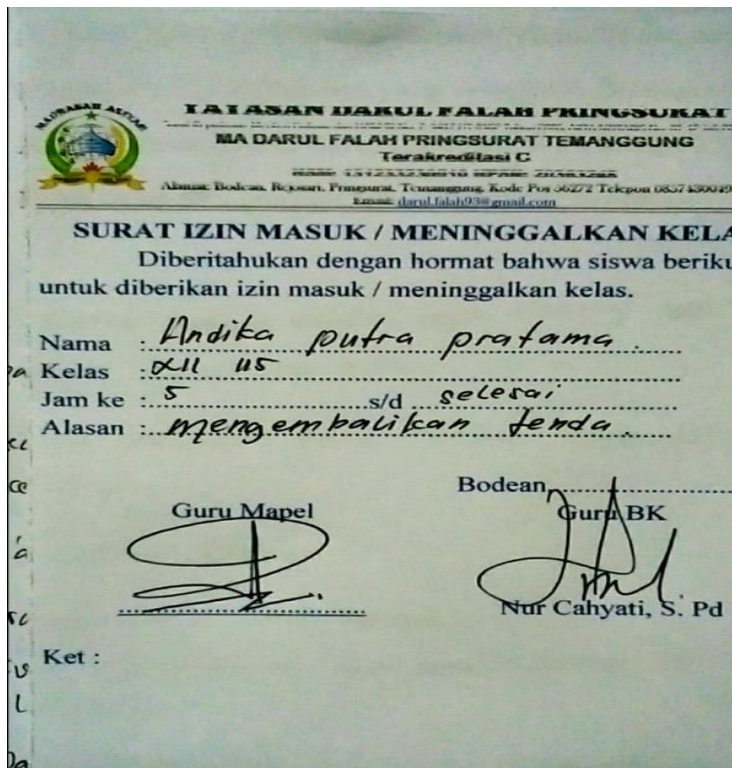 MADRASAH ALIYAH
YAYASAN DARUL FALAH PRINGSURAT
MA DARUL FALAH PRINGSURAT TEMANGGUNG
Terakreditasi C
Alamat: Bodean, Rejosari, Pringsurat, Temanggung, Kode Pos 56272 Telepon
Email: darul.falah93@gmail.com
SURAT IZIN MASUK / MENINGGALKAN KELA
Diberitahukan dengan hormat bahwa siswa beriku
untuk diberikan izin masuk / meninggalkan kelas.
Nama : Andika putra pratama
Kelas :
Jam ke : 5 s/d selesai
Alasan : mengembalikan tenda
Bodean,
Guru Mapel Guru BK
Nur Cahyati, S. Pd
Ket :